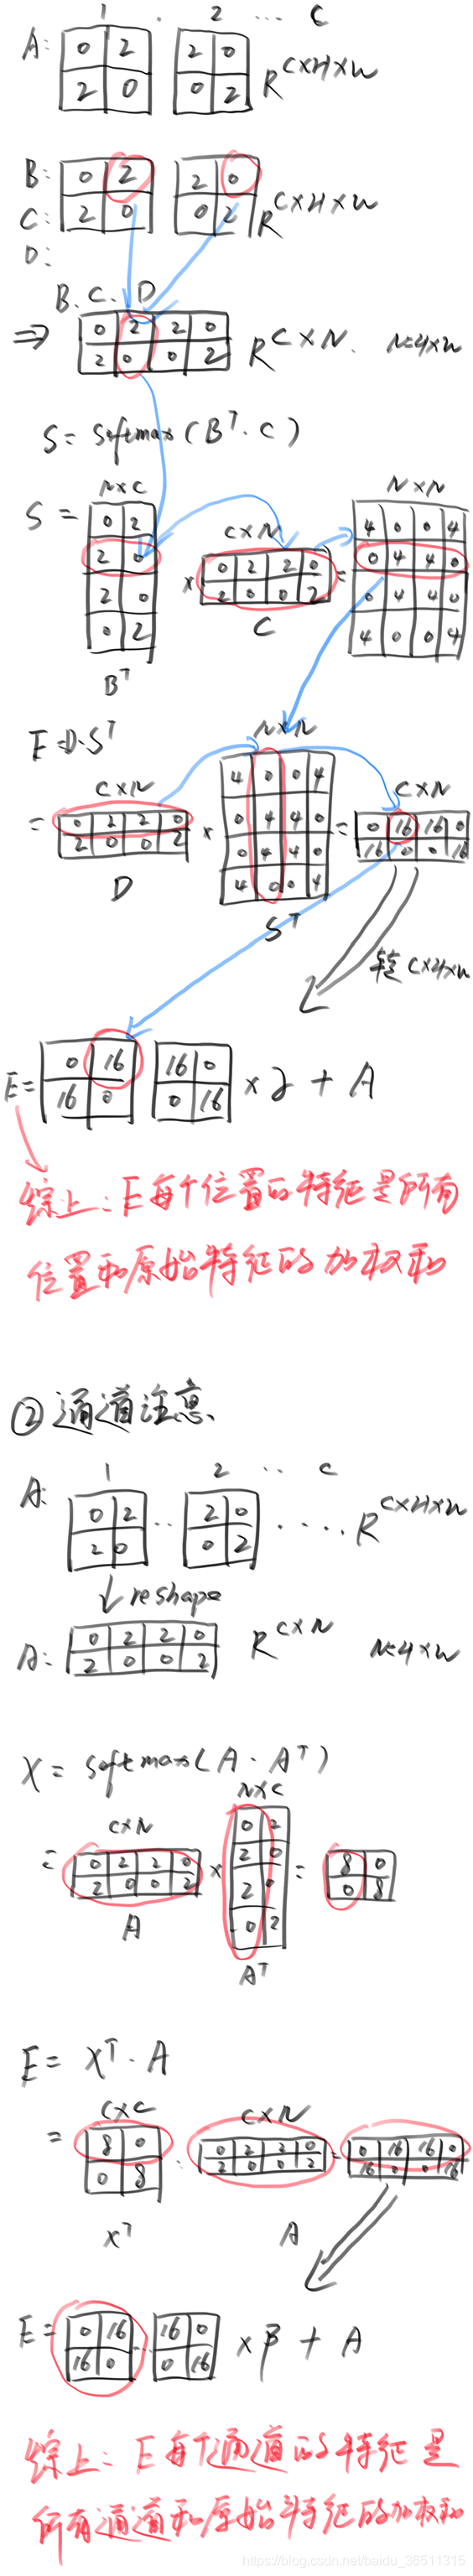 1 . 2 ... C
A: 0 2 2 0
2 0 0 2 R^{C×H×W}
B: 0 2 2 0
C: 2 0 0 2 R^{C×H×W}
D:
B. C. D
⇒ 0 2 2 0
2 0 0 2 R^{C×N}. N=H×W
S = Softmax(B^T·C)
N×C C×N N×N
S = 0 2
2 0
2 0
0 2
× 0 2 2 0
2 0 0 2
= 4 0 0 4
0 4 4 0
0 4 4 0
4 0 0 4
B^T C
E=D·S^T
C×N N×N C×N
= 0 2 2 0
2 0 0 2
× 4 0 0 4
0 4 4 0
0 4 4 0
4 0 0 4
= 0 16 16 0
16 0 0 16
D S^T
转 C×H×W
E= 0 16 16 0
16 0 0 16 ×α + A
综上: E每个位置的特征是所有
位置和原始特征的加权和
②通道注意、
1 2 ... C
A: 0 2 ... 2 0 ..... R^{C×H×W}
2 0 0 2
↓reshape
A: 0 2 2 0 R^{C×N} N=H×W
2 0 0 2
X = Softmax(A·A^T)
C×N N×C
= 0 2 2 0
2 0 0 2
× 0 2
2 0
2 0
0 2
= 8 0
0 8
A A^T
E= X^T·A
C×C C×N
= 8 0
0 8
· 0 2 2 0
2 0 0 2
= 0 16 16 0
16 0 0 16
X^T A
E= 0 16 ... 16 0 ×β + A
16 0 0 16
综上: E每个通道的特征是
所有通道和原始特征的加权和
https://blog.csdn.net/baidu_36511315